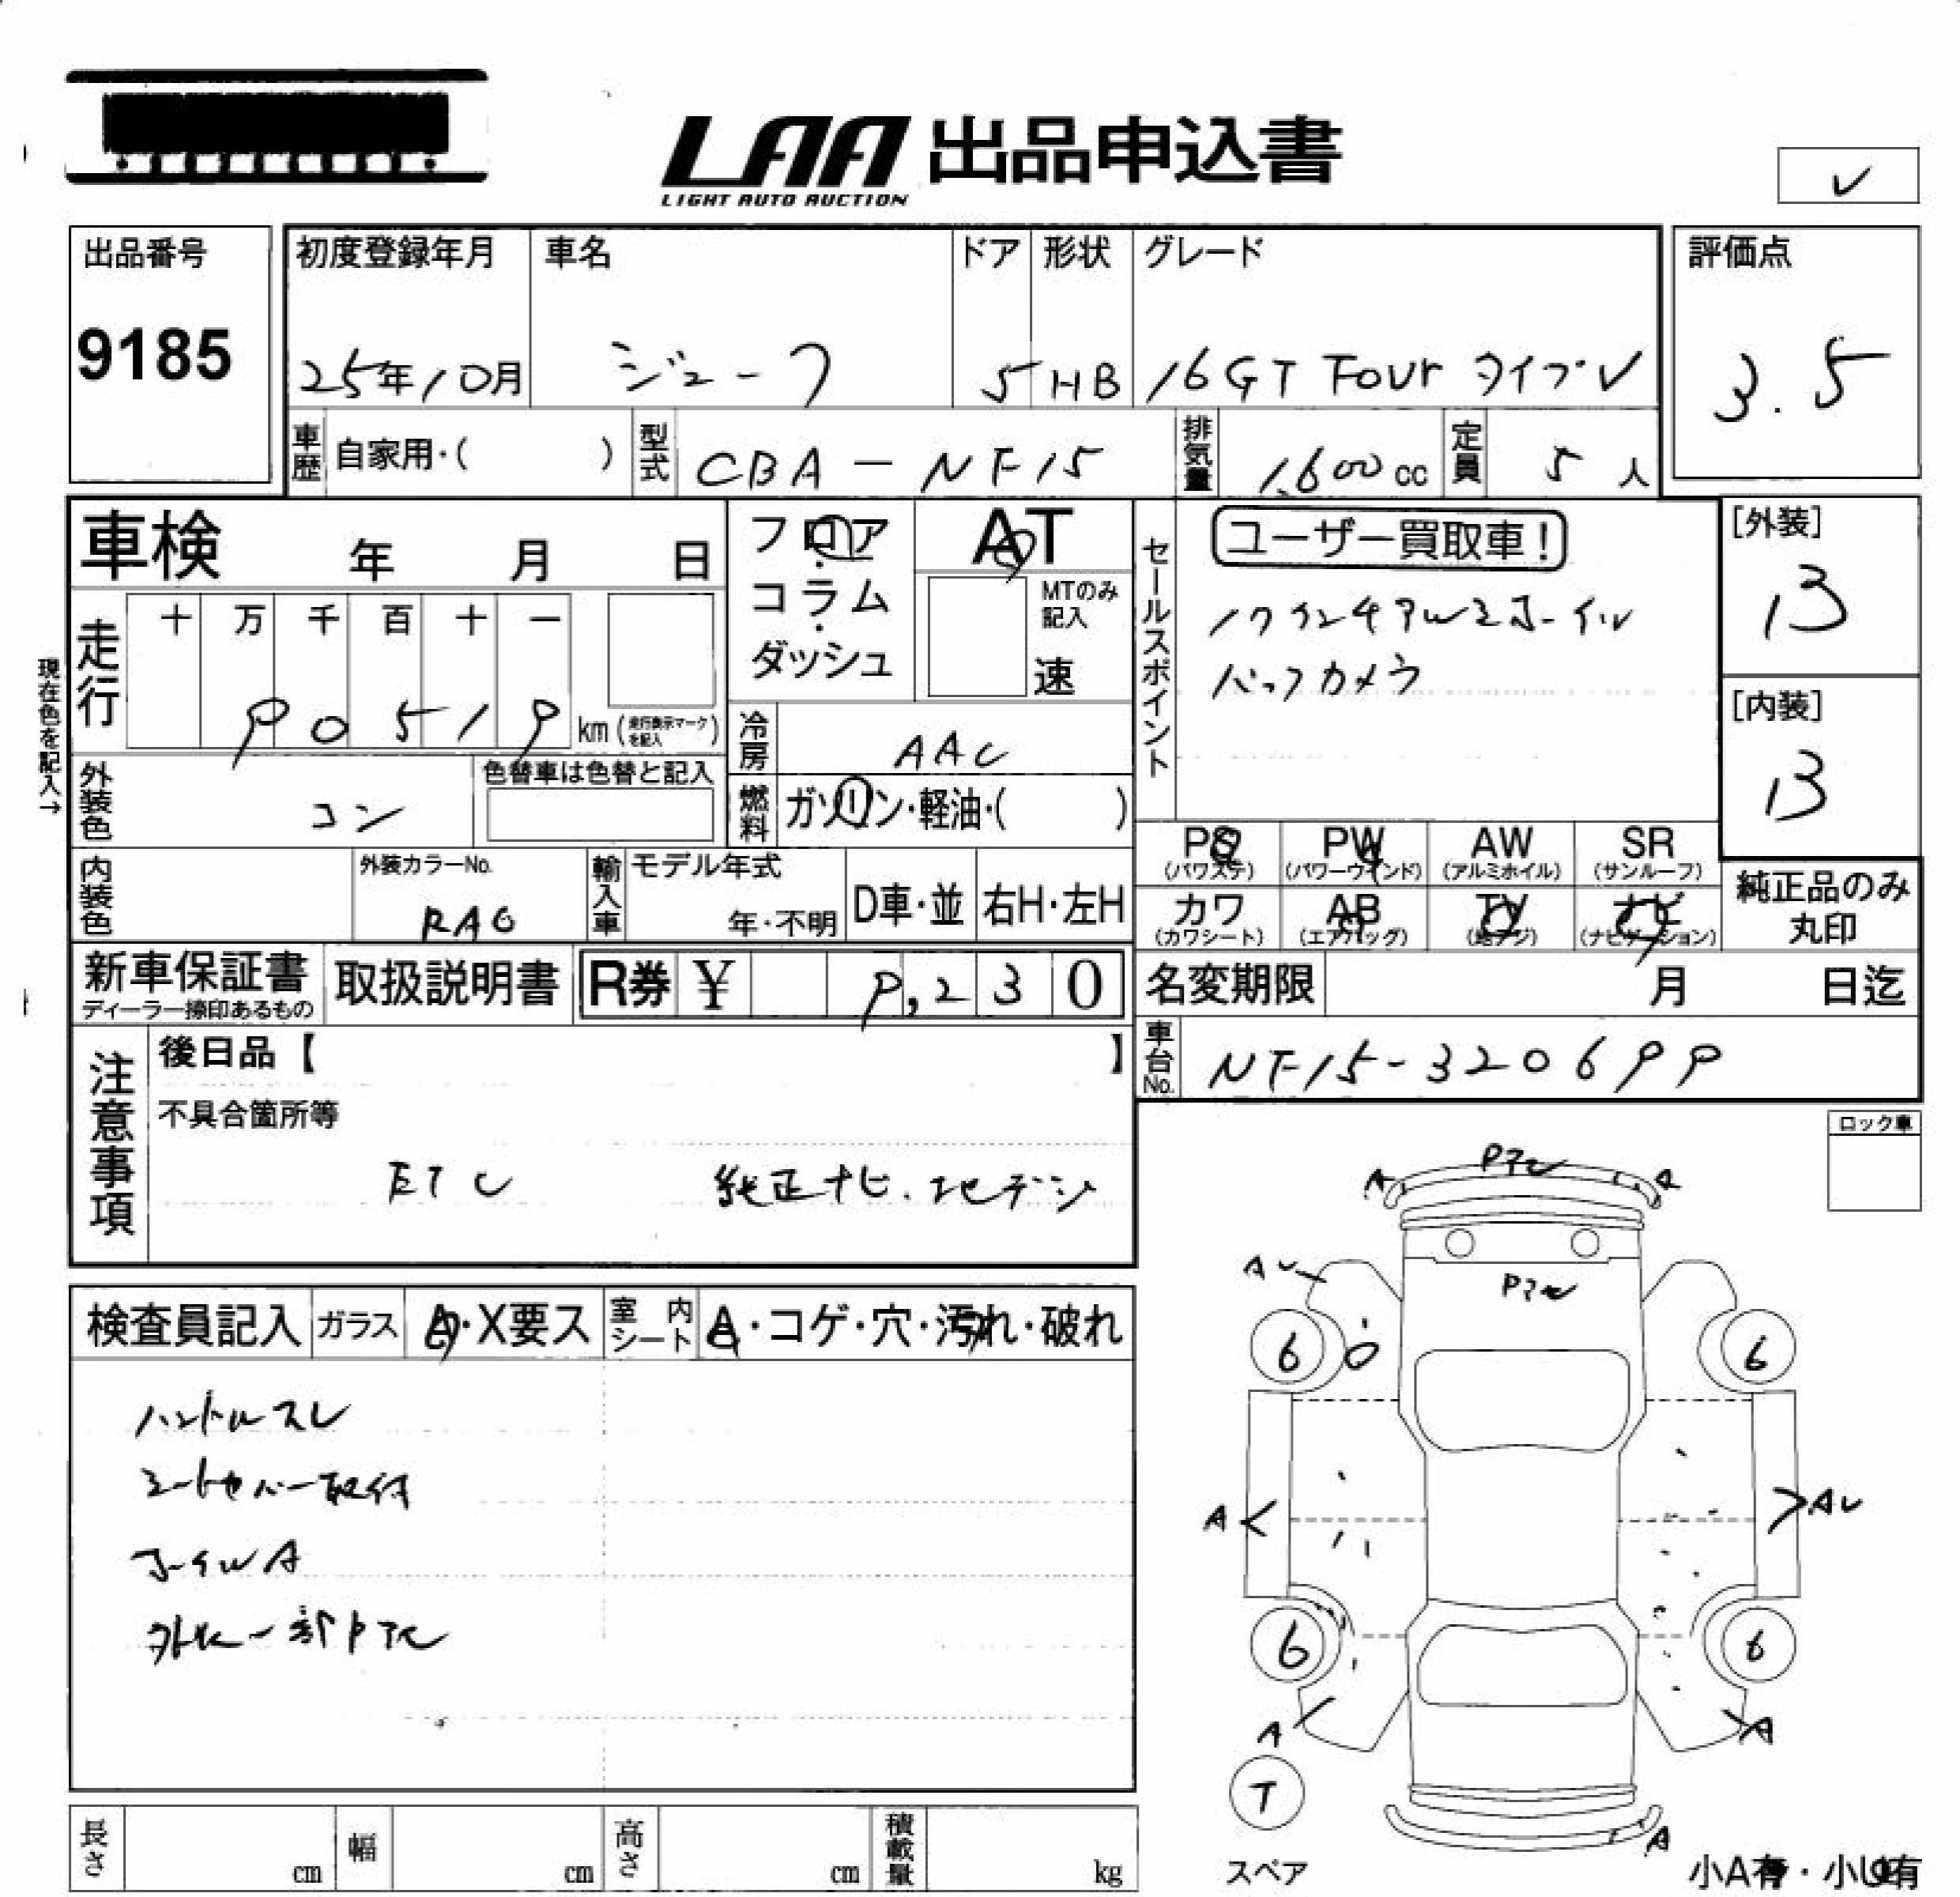 LAA 出品申込書
LIGHT AUTO AUCTION
✓
出品番号
9185
初度登録年月
25年10月
車名
ジューク
ドア
5
形状
HB
グレード
16GT Four タイプV
評価点
3.5
車歴
自家用・( )
型式
CBA-NF15
排気量
1,600 cc
定員
5 人
車検 年 月 日
走行
十 万 千 百 十 一
90519 km (走行表示マークを記入)
現在色を記入→
外装色
コン
色替車は色替と記入
内装色
外装カラーNo.
RAG
輸入車
モデル年式
年・不明
D車・並
右H・左H
フロア・
コラム・
ダッシュ
AT
MTのみ記入
速
冷房
AAC
燃料
ガソリン・軽油・( )
セールスポイント
ユーザー買取車!
17インチアルミホイル
バックカメラ
[外装]
B
[内装]
B
PS (パワステ)
PW (パワーウインド)
AW (アルミホイル)
SR (サンルーフ)
カワ (カワシート)
AB (エアバッグ)
TV (地デジ)
ナビ (ナビゲーション)
純正品のみ丸印
新車保証書
ディーラー捺印あるもの
取扱説明書
R券 ¥ 9,230
名変期限 月 日迄
車台No.
NF15-320699
注意事項
後日品【 】
不具合箇所等
ETC 純正ナビ.地デジ
ロック車
検査員記入
ガラス
A・X要ス
室内シート
A・コゲ・穴・汚れ・破れ
ハンドルスレ
シートカバー取付
ホイルA
外装一部Pアセ
A Pアセ A
AU
Pアセ
6 6
A AU
6 6
A A
T
A
スペア
小A有・小U有
長さ cm
幅 cm
高さ cm
積載量 kg